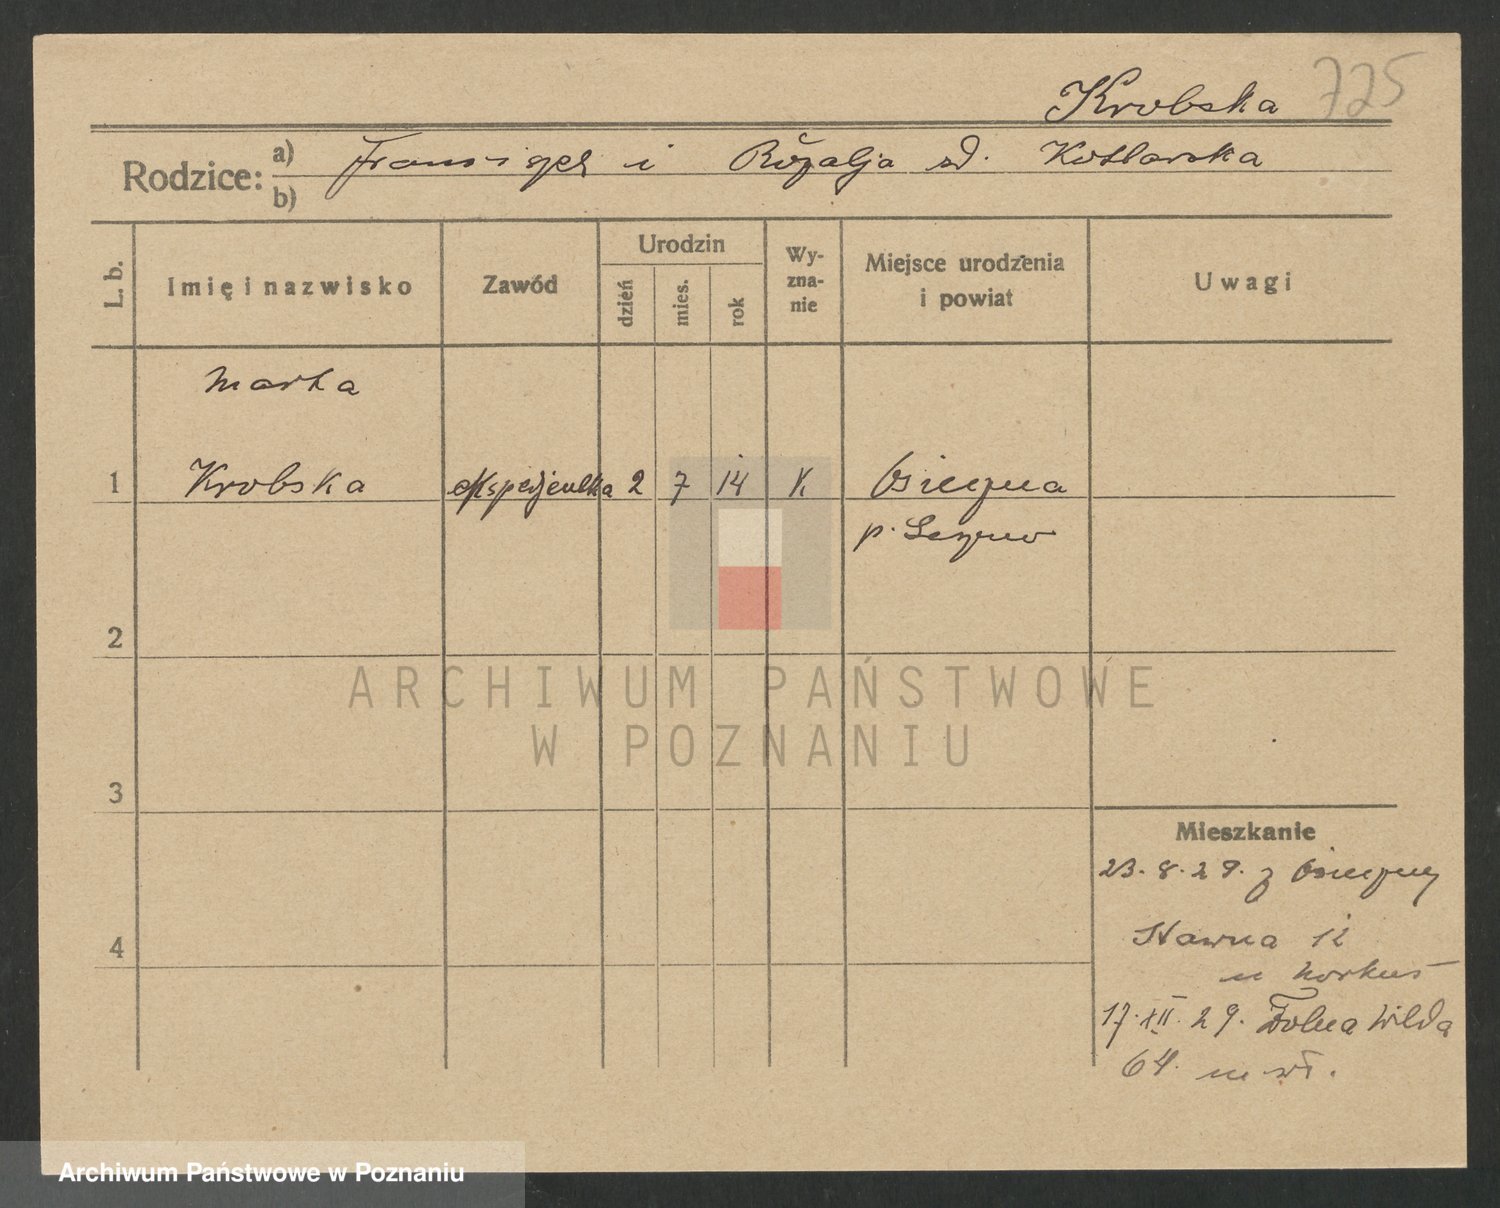 Krobska 725
Rodzice: a) Franciszek i Rozalja zd. Kotlarska
b)
L. b. Imię i nazwisko Zawód Urodzin dzień mies. rok Wyznanie Miejsce urodzenia i powiat Uwagi
Marta
1 Krobska ekspedjentka 2 7 14 K Osieczna
p. Leszno
2
ARCHIWUM PAŃSTWOWE
W POZNANIU
3
Mieszkanie
23.8.29. z Osieczny
4 Stawna 12
u
17.XII.29. Dolna Wilda
64.
Archiwum Państwowe w Poznaniu